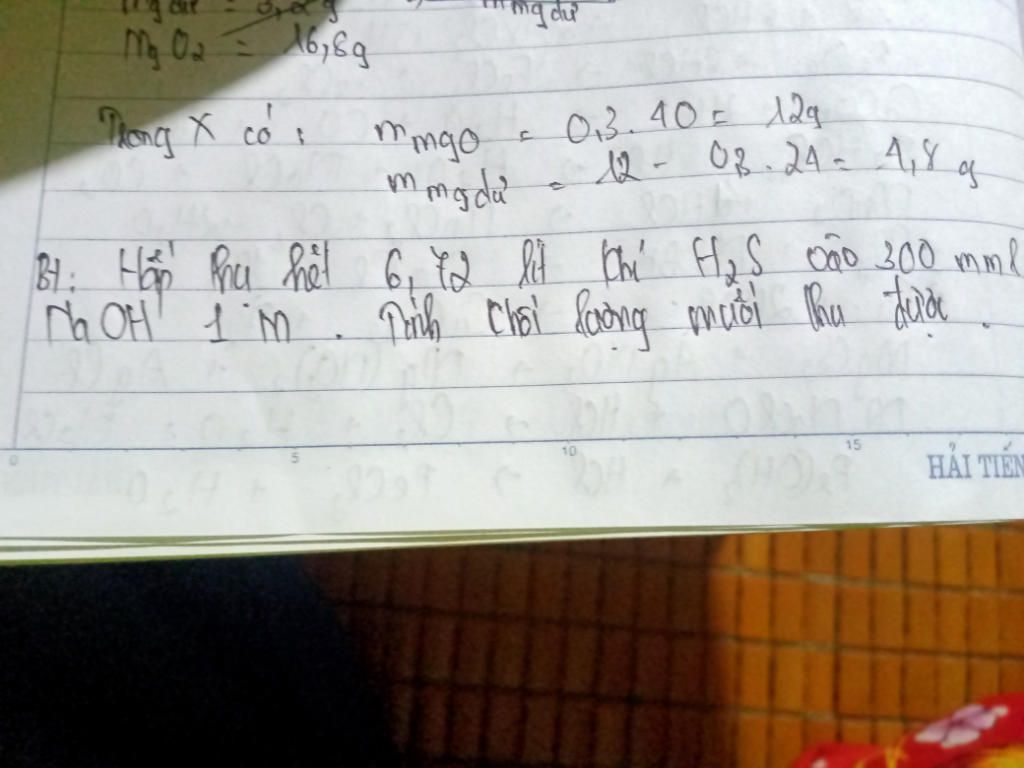 MgO2 = 16,8g
Trong X có: mMgO = 0,3.40 = 12g
mmg dư = 12 - 0,3.24 = 4,8 g
Bt: Hấp thu hết 6,72 lít khí H2S vào 300 mml
NaOH 1 M. Tính khối lượng muối thu được.
0 5 10 15
HẢI TIẾN